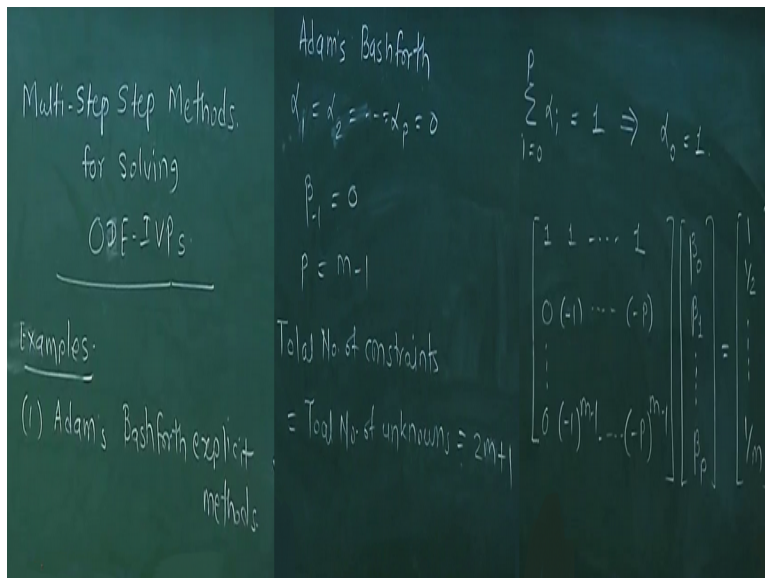 Multi-Step Step Methods.
for solving
ODE-IVPs.
Examples.
(1) Adam's Bashforth explicit
methods.
Adam's Bashforth
α₁ = α₂ = .... αₚ = 0
β₋₁ = 0
p = m-1
Total No. of constraints
= Toal No. of unknowns = 2m+1
p
Σ αᵢ = 1 ⇒ α₀ = 1.
i=0
[ 1 1 .... 1 ] [ β₀ ] [ 1
[ 0 (-1) .... (-p) ] [ β₁ ] = [ 1/2
[ ⋮ ] [ ⋮ ] [ ⋮
[ 0 (-1)^m-1 .... (-p)^m-1 ] [ βₚ ] [ 1/m